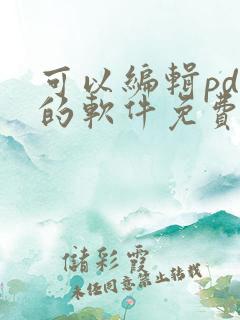 可以編輯pd
的軟件免費
儲彩霞
未经同意禁止转载